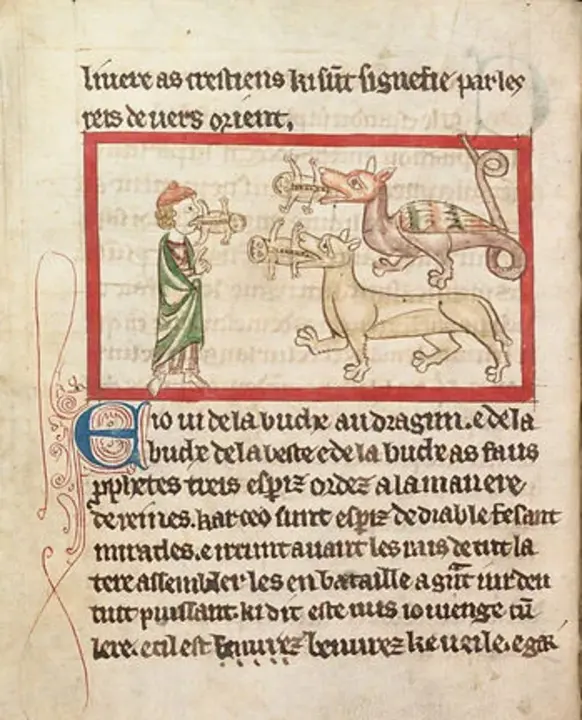 liuere as crestiens ki sūt signefie par les
reis de uers orient.
E io ui de la buche au dragun. e de la
buche de la beste e de la buche as faus
prophetes treis espiz ordez a la manere
de reines. kar ceo sunt espiz de diable fesant
miracles. e irrunt auant les rais de tut la
tere assembler les en bataille a gñt iur deu
tut puissant. ki dit este uus io uienge cū
lere. e cil est benurez benurez ke ueile. e gar